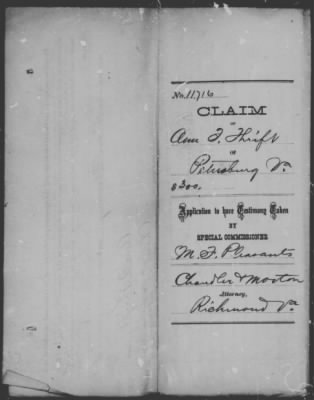 No. 11,716
CLAIM
OF
Ann F. Thrift
OF
Petersburg Va
$300.
Application to have Testimony Taken
BY
SPECIAL COMMISSIONER
M. F. Pleasants
Chandler & Morton
Attorney,
Richmond Va.